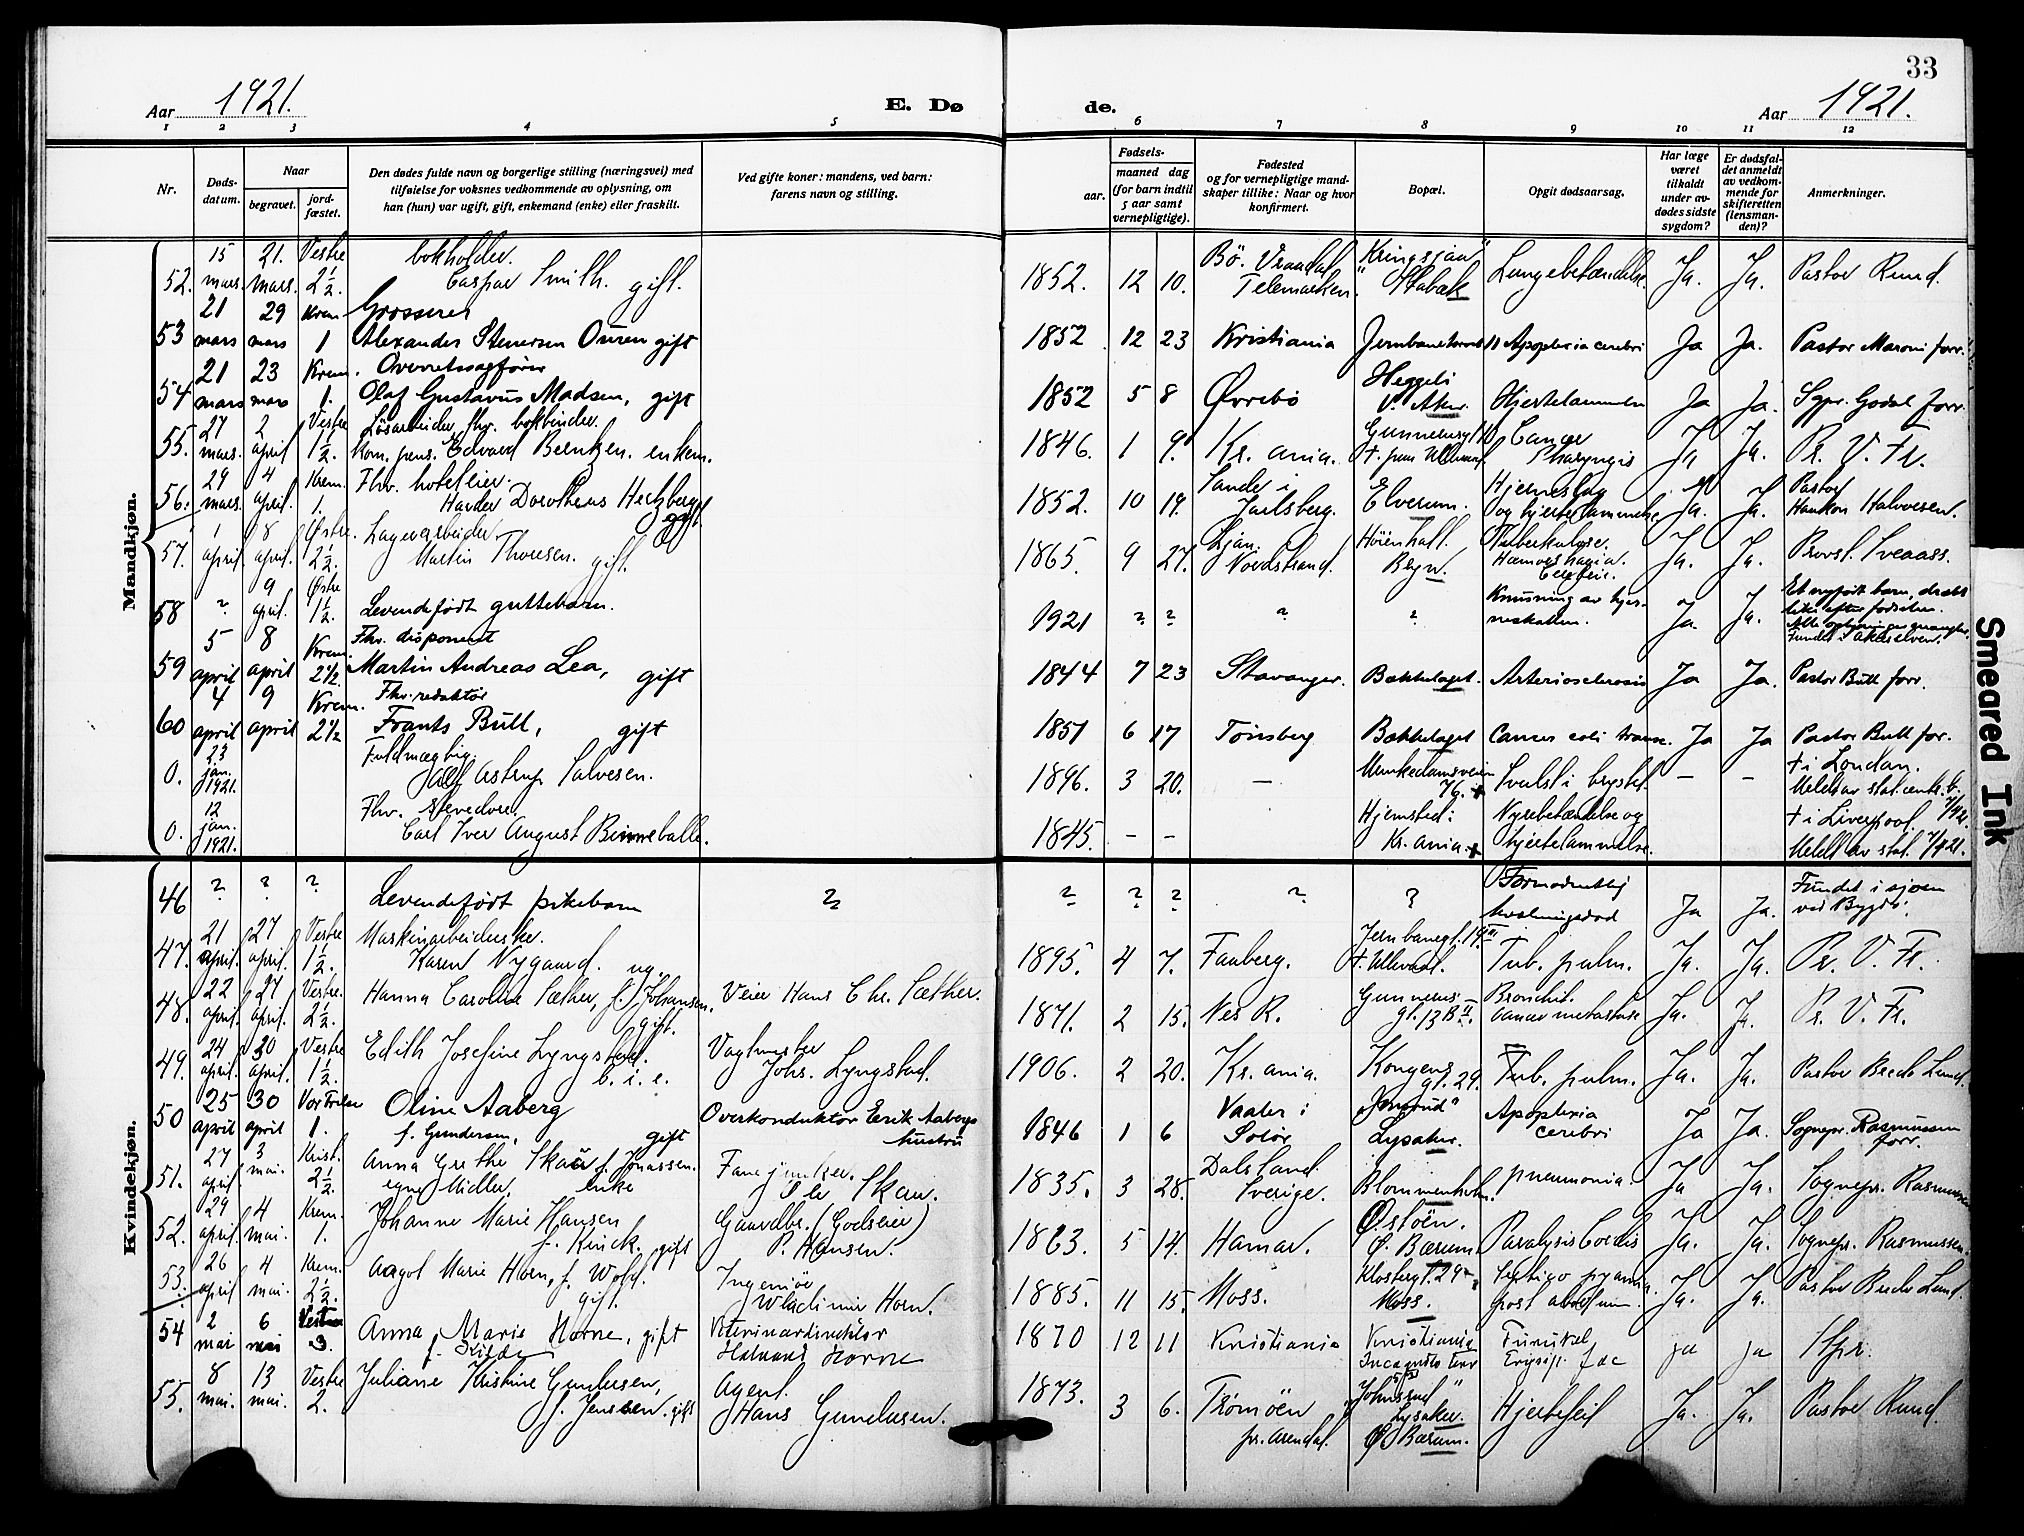 33
Aar 1921.
E. Dø
de.
Aar 1921.
1 2 3 4 5 6 7 8 9 10 11 12
Nr.
Døds-
datum.
Naar
begravet.
jord-
fæstet.
Den dødes fulde navn og borgerlige stilling (næringsvei) med
tilføielse for voksnes vedkommende av oplysning, om
han (hun) var ugift, gift, enkemand (enke) eller fraskilt.
Ved gifte koner: mandens, ved barn:
farens navn og stilling.
Fødsels-
aar.
maaned dag
(for barn indtil
5 aar samt
vernepligtige).
Fødested
og for vernepligtige mand-
skaper tillike: Naar og hvor
konfirmert.
Bopæl.
Opgit dødsaarsag.
Har læge
været
tilkaldt
under av-
dødes sidste
sygdom?
Er dødsfal-
det anmeldt
av vedkom-
mende for
skifteretten
(lensman-
den)?
Anmerkninger.
Mandkjøn.
15 21. Vestre bokholder. Bø. Vraadal "Kringsjaa"
52. mars. mars. 2½. Caspar Smith. gift. 1852. 12 10. Telemarken. Stabæk Lungebetændelse Ja. Ja. Pastor Rund.
21 29 Krem Grosserer
53 mars mars 1 Alexander Stenersen Ouren gift 1852 12 23 Kristiania 11 Apoplexia cerebri Ja Ja. Pastor Maroni forr.
21 23 Krem. Overretssagfører Heggeli
54 mars mars 1. Olaf Gustavus Madsen, gift 1852 5 8 Øvrebø V. Aker. Hjertelammelse Ja Ja. Sgpr. Godal forr.
27 2 Vestre Løsarbeider, fhv. bokbinder. Cancer
55. mars. april 1½. kom. pens. Edvard Berntzen. enkem. 1846. 1 9. Kr.ania. Pharyngis Ja Ja. Pr. V. Fr.
29 4 Krem. Fhv. hoteleier. Sande i Hjerneslag Pastor
56. mars. april. 1. Harder Dorotheus Hertzberg gift 1852. 10 19. Jarlsberg. Elverum. og hjertelammelse Ja. Ja. Haakon Halvorsen.
1 8 Østre. Lagerarbeider Ljan. Høienhall. Tuberkulose.
57. april. april. 2½. Martin Thoresen. gift. 1865. 9 27. Nordstrand. Bryn. Hæmorrhagia Cerebri. Ja. Ja. Provst. Sveaass.
9 Østre Knusning av hjer- Et nyfødt barn, dræbt
58 ? april. 1½. Levendefødt guttebarn. 1921 ? ? ? ? neskallen. Ja. Ja. like efter fødselen.
Alle oplysninger mangler.
Fundet i Akerselven.
5 8 Krem. Fhv. disponent
59 april april 2½. Martin Andreas Lea, gift 1844 7 23 Stavanger. Bækkelaget. Arteriosclerosis Ja Ja. Pastor Bull forr.
4 9 Krem. Fhv. redaktør
60 april april 2½ Frants Bull, gift 1851 6 17 Tønsberg Bækkelaget Cancer coli transv. Ja Ja Pastor Bull for.
23 Fuldmægtig Munkedamsveien † i London.
0. jan. 1921. Astrup Salvesen. 1896. 3 20. — 76. + Svulst i brystet — — Meldt av stat. centr. b. 7/4 21.
12 Fhv. stevedore. Hjemsted: Nyrebetændelse og † i Liverpool.
0. jan. 1921. Carl Iver August Binneballe. 1845. — — Kr.ania. + hjertelammelse. Meldt av stat. 7/4 21.
Kvindekjøn.
? ? ? Formodentlig Fundet i sjøen
46 Levendefødt pikebarn ? ? ? ? ? ? kvælningsdød Ja Ja. ved Bygdø.
21 27 Vestre Maskinarbeiderske. Jernbanegt. 19 III
47. april. april. 1½. Karen Nygaard. ug. 1895. 4 7. Faaberg. f. Ulleval. Tub. pulm. Ja. Ja. Pr. V. Fr.
22 27 Vestre. Hanna Caroline Sæther, f. Johansen. Veier Hans Chr. Sæther. Gunnerus Bronchit.
48. april. april. 2½. gift. 1871. 2 15. Nes R. gt. 13 B II. Cancer metastase Ja. Ja. Pr. V. Fr.
24 30 Vestre Edith Josefine Lyngstad. Vagtmester Kongens
49. april. april. 1½. b. i. e. Johs. Lyngstad. 1906. 2 20. Kr.ania. gt. 29. Tub. pulm. Ja. Ja. Pastor Brede Lund.
25 30 Vor Frelser Oline Aaberg Overkonduktør Erik Aabergs Vaaler i Apoplexia
50 april april 1. f. Gundersen, gift hustru 1846 1 6 Solør Lysaker. cerebri Ja Ja. Sognepr. Rasmussen forr.
27 3 Krist. Anna Grethe Skau f. Jonassen. Fanejunker. Dalsland
51. april. mai. 2½. egne Midler. enke Ole Skau. 1835. 3 28. Sverige. Blommenholm. pneumonia. Ja Ja. Sognepr. Rasmussen
29 4 Krem. Johanne Marie Hansen Gaardbr. (Godseier) Østøen.
52. april mai. 1. f. Kinck. gift P. Hansen. 1863. 5 14. Hamar. Ø. Bærum. Paralysis Cordis Ja. Ja. Sognepr. Rasmussen.
26 4 Krem. Aagot Marie Horn, f. Wold. Ingeniør Klostergt. 29
53. april mai. 2½. gift. Wladimir Horn. 1885. 11 15. Moss. Moss. post abortum. Ja. Ja. Pastor Brede Lund.
2 6 Vestre Anna Marie Horne, gift Veterinærdirektør Kristiania Furunkel
54 mai mai 3. f. Kilde Halvard Horne 1870 12 11 Kristiania Incognito Terr Erysip. fac ja ja Spr.
8 13 Vestre Juliane Kristine Gundersen, Agent.
55. mai. mai. 2. f. Jenssen. gift Hans Gundersen. 1873. 3 6. Tromøen pr. Arendal. Lysaker. Ø. Bærum. Hjertefeil Ja. Ja. Pastor Rund.
Smeared Ink